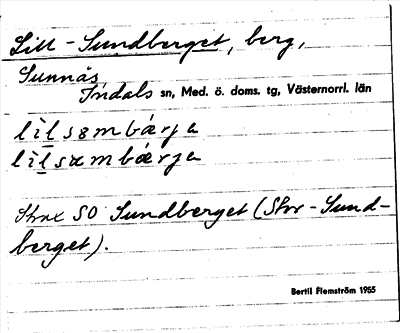 Lill-Sundberget, berg,
Sunnås
Indals sn, Med. ö. doms. tg, Västernorrl. län
Strax SO Sundberget (Stor-Sund-
berget).
Bertil Flemström 1955